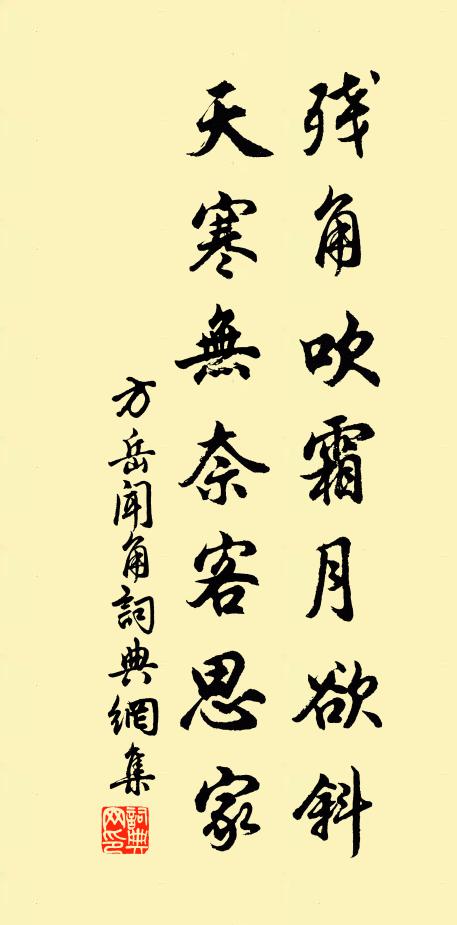 残角吹霜月欲斜
天寒無奈客思家
方岳闻角詞典網集
詞典網印